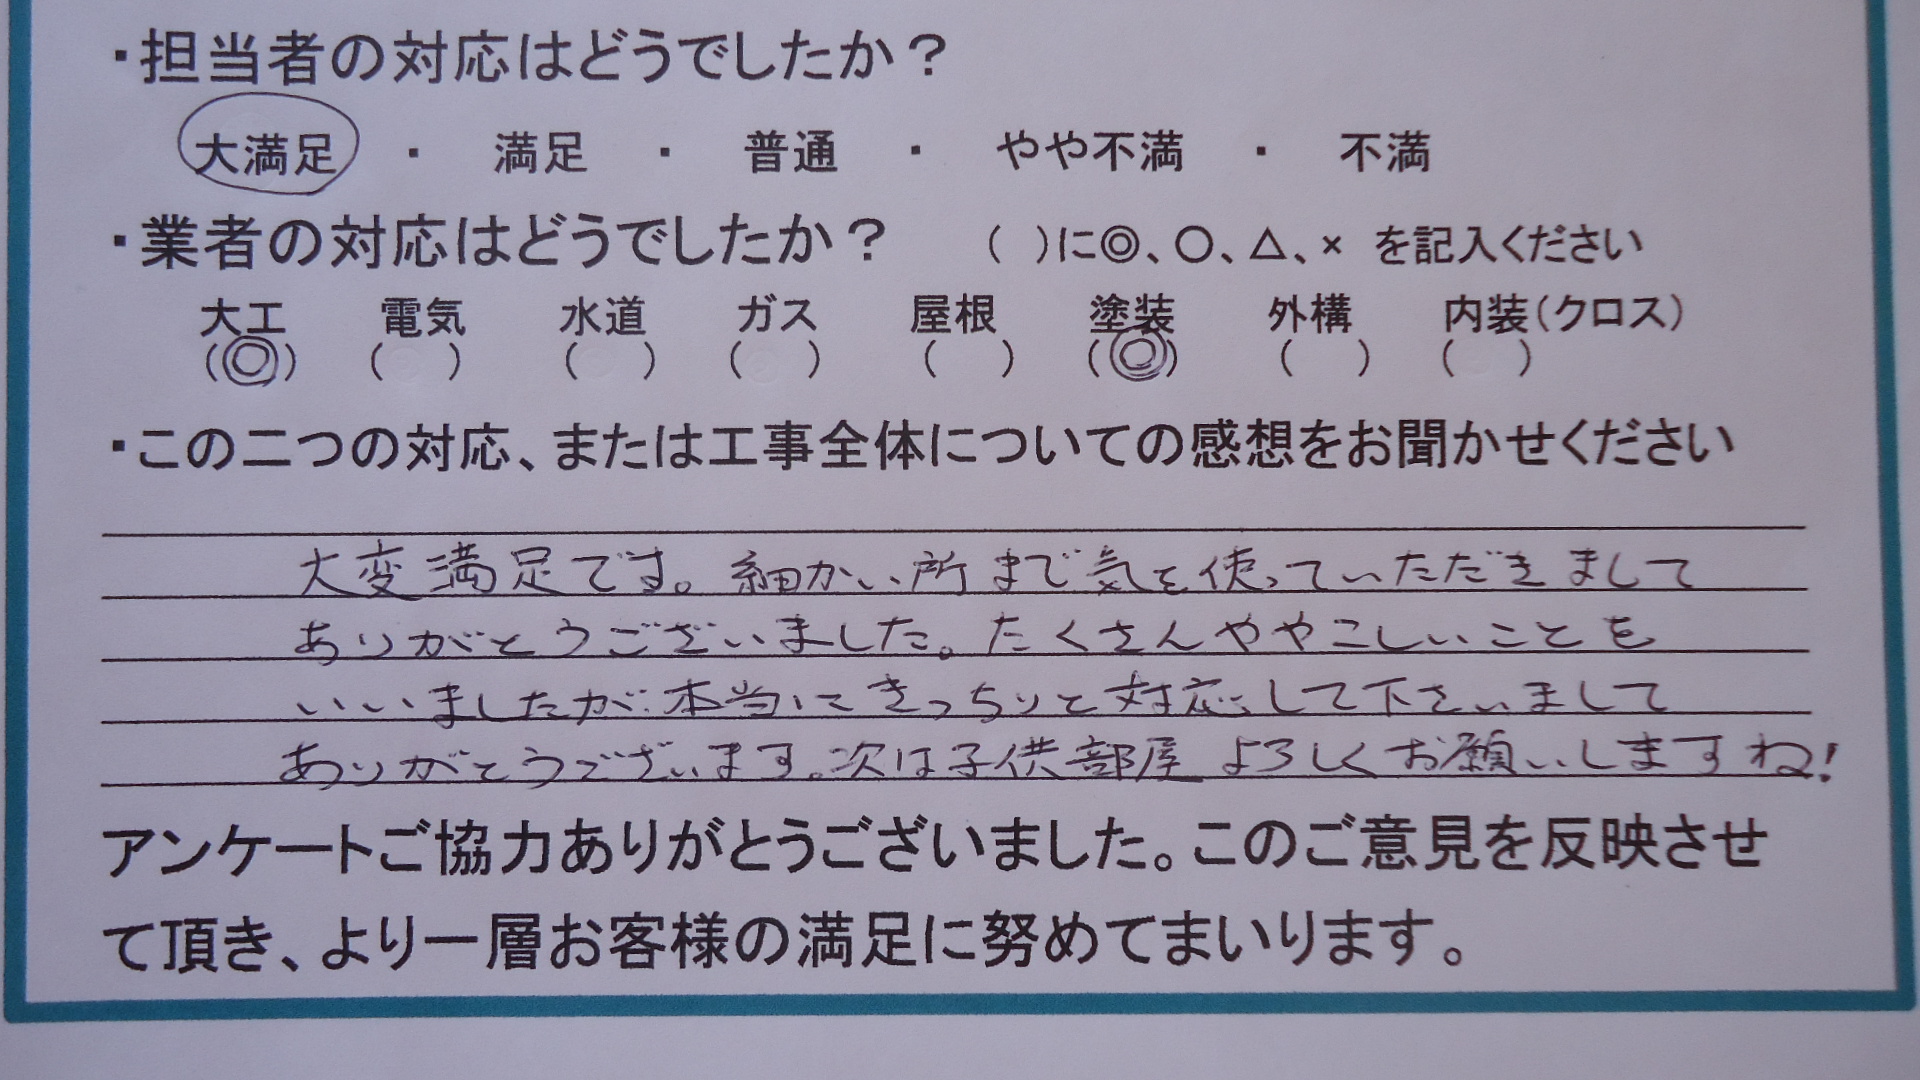 ・担当者の対応はどうでしたか？
大満足 ・ 満足 ・ 普通 ・ やや不満 ・ 不満
・業者の対応はどうでしたか？ （ ）に◎、○、△、× を記入ください
大工 電気 水道 ガス 屋根 塗装 外構 内装（クロス）
（◎） （ ） （ ） （ ） （ ） （◎） （ ） （ ）
・この二つの対応、または工事全体についての感想をお聞かせください
大変満足です。細かい所まで気を使っていただきまして
ありがとうございました。たくさんややこしいことを
いいましたが本当にきっちりと対応して下さいまして
ありがとうございます。次は子供部屋よろしくお願いしますね！
アンケートご協力ありがとうございました。このご意見を反映させ
て頂き、より一層お客様の満足に努めてまいります。